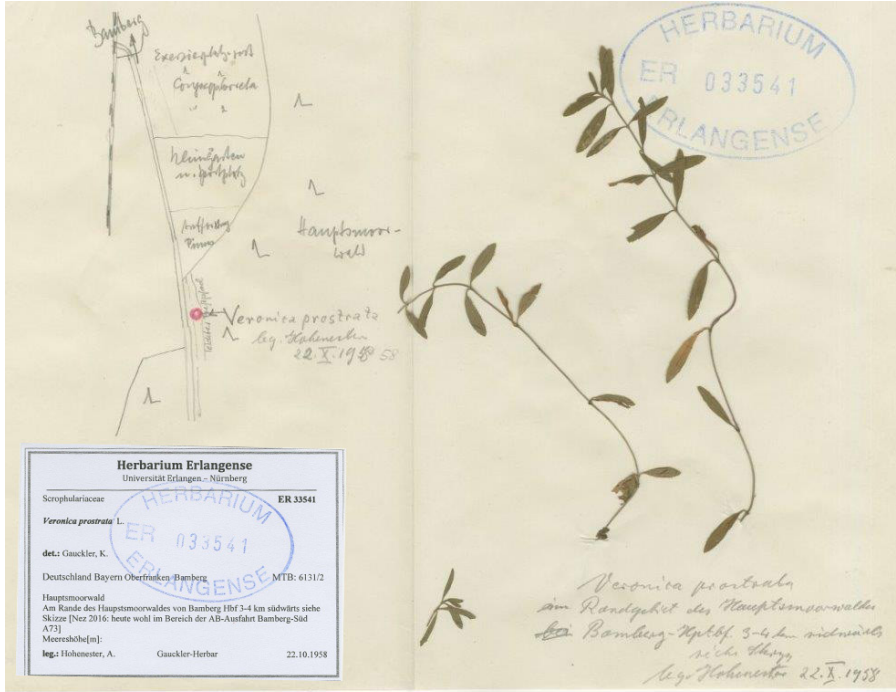 Bamberg
Exerzierplatz
Corynephoreta
Kleingärten
u. Sportplatz
Aufforstung
Pinus
Hauptsmoor-
wald
Veronica prostrata
leg. Hohenester
22. X. 1958 58
HERBARIUM
ER 033541
ERLANGENSE
Herbarium Erlangense
Universität Erlangen - Nürnberg
Scrophulariaceae ER 33541
Veronica prostrata L.
HERBARIUM
ER 033541
ERLANGENSE
det.: Gauckler, K.
Deutschland Bayern Oberfranken Bamberg MTB: 6131/2
Hauptsmoorwald
Am Rande des Haupstmoorwaldes von Bamberg Hbf 3-4 km südwärts siehe
Skizze [Nez 2016: heute wohl im Bereich der AB-Ausfahrt Bamberg-Süd
A73]
Meereshöhe[m]:
leg.: Hohenester, A. Gauckler-Herbar 22.10.1958
Veronica prostrata
im Randgebiet des Hauptsmoorwaldes
bei Bamberg-Hptbf. 3-4 km südwärts
siehe Skizze
leg. Hohenester 22. X. 1958